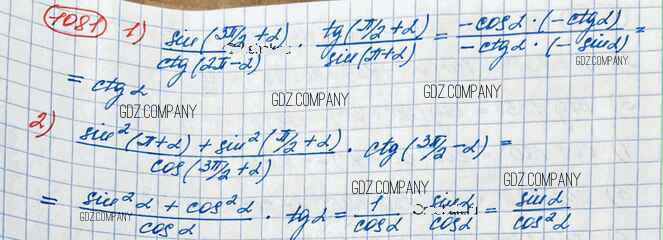 1081 1) sin(3π/2+α)/ctg(2π-α) · tg(π/2+α)/sin(π+α) = -cosα·(-ctgα)/-ctgα·(-sinα) =
GDZ.COMPANY
= ctgα
GDZ.COMPANY
GDZ.COMPANY
GDZ.COMPANY
2) sin²(π+α)+sin²(π/2+α)/cos(3π/2+α) · ctg(3π/2-α) =
GDZ.COMPANY
GDZ.COMPANY
= sin²α+cos²α/cosα · tgα = 1/cosα · sinα/cosα = sinα/cos²α
GDZ.COMPANY